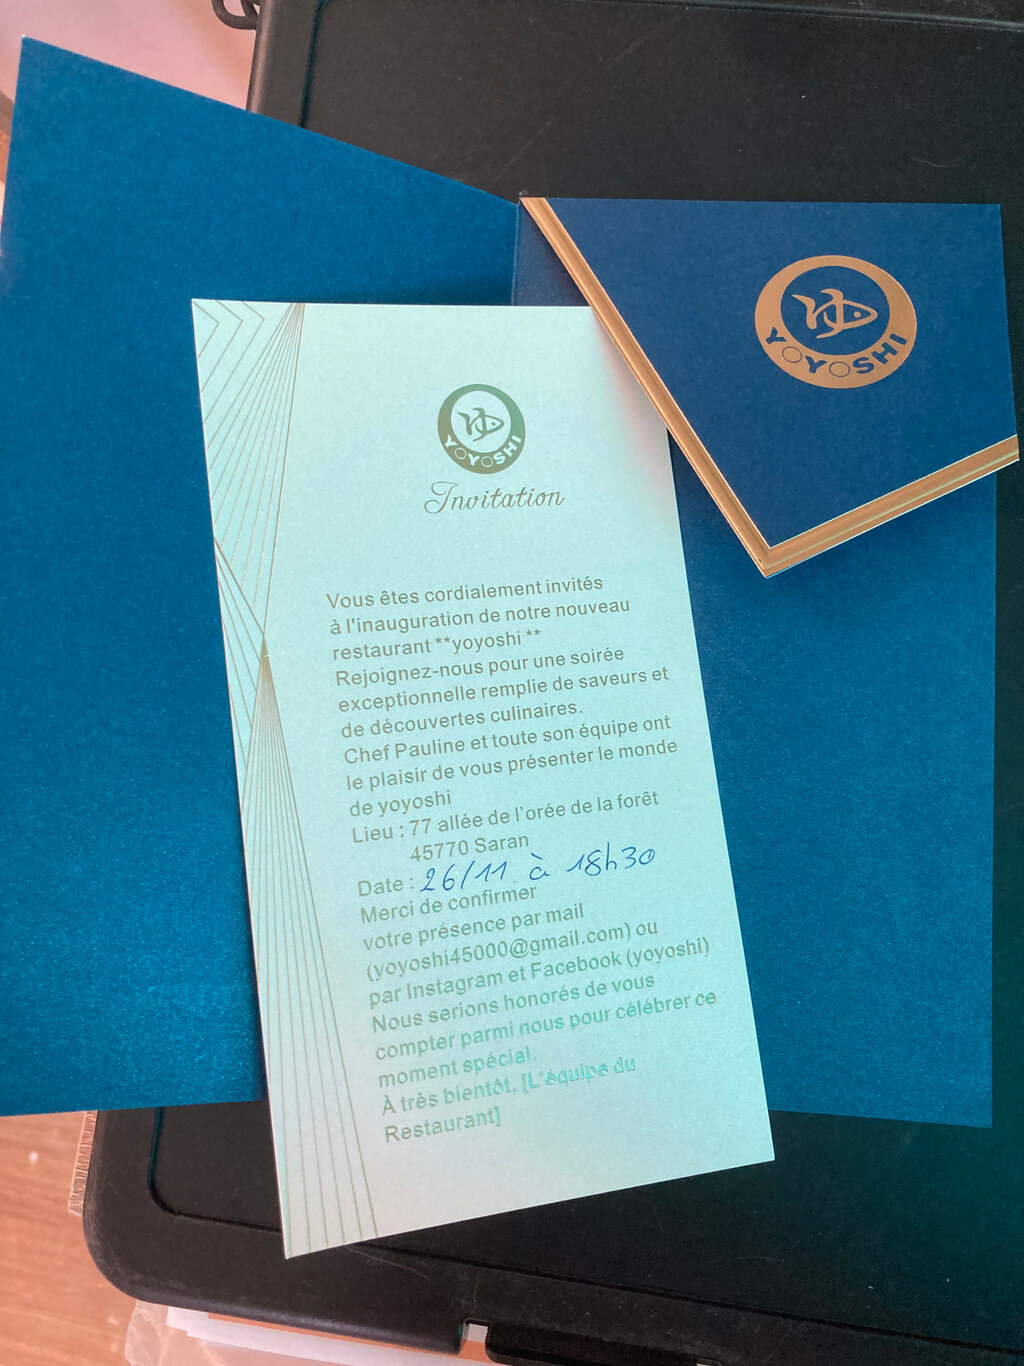 YOYOSHI
YOYOSHI
Invitation
Vous êtes cordialement invités
à l'inauguration de notre nouveau
restaurant **yoyoshi **
Rejoignez-nous pour une soirée
exceptionnelle remplie de saveurs et
de découvertes culinaires.
Chef Pauline et toute son équipe ont
le plaisir de vous présenter le monde
de yoyoshi
Lieu : 77 allée de l'orée de la forêt
45770 Saran
Date : 26/11 à 18h30
Merci de confirmer
votre présence par mail
(yoyoshi45000@gmail.com) ou
par Instagram et Facebook (yoyoshi)
Nous serions honorés de vous
compter parmi nous pour célébrer ce
moment spécial.
À très bientôt, [L'équipe du
Restaurant]